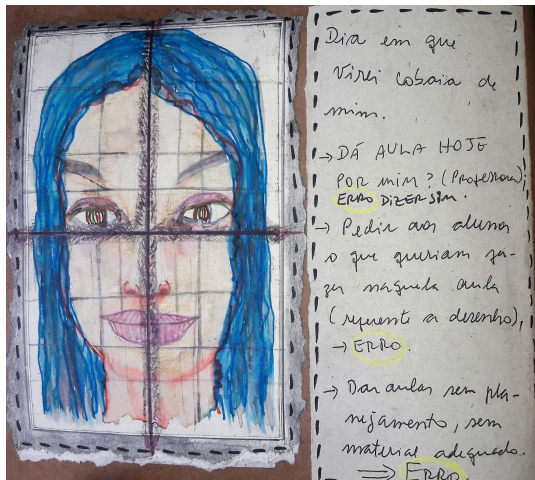 Dia em que
Virei cobaia de
mim.
→ DÁ AULA HOJE
POR MIM? (Professora);
ERRO DIZER SIM.
→ Pedir aos alunos
o que queriam fa-
zer naquela aula
(referente a desenho),
→ ERRO.
→ Dar aulas sem pla-
nejamento, sem
material adequado.
⇒ ERRO